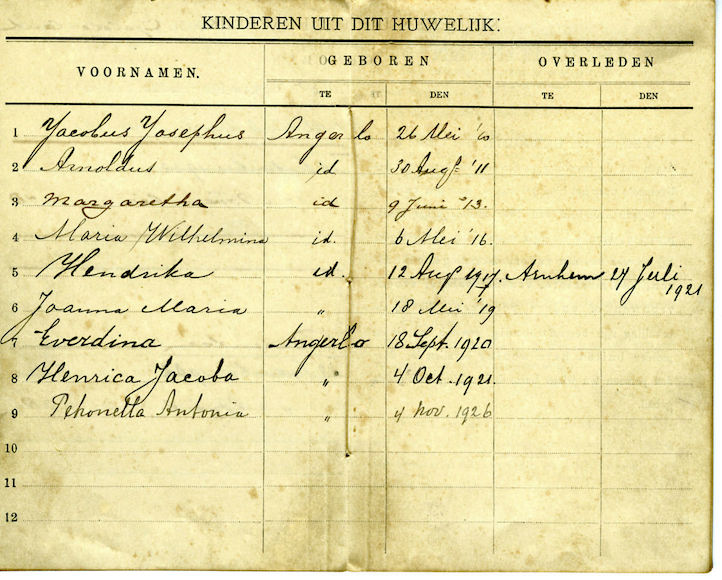 KINDEREN UIT DIT HUWELIJK:
VOORNAMEN. GEBOREN OVERLEDEN
TE DEN TE DEN
1 Jacobus Josephus Angerlo 26 Mei '10
2 Arnoldus id 30 Aug '11
3 Margaretha id 9 Juni '13.
4 Maria Wilhelmina id. 6 Mei '16.
5 Hendrika id. 12 Aug 1917. Arnhem 27 Juli 1921
6 Joanna Maria " 18 Mei '19
7 Everdina Angerlo 18 Sept. 1920
8 Henrica Jacoba " 4 Oct. 1921.
9 Petronella Antonia " 4 nov. 1926
10
11
12